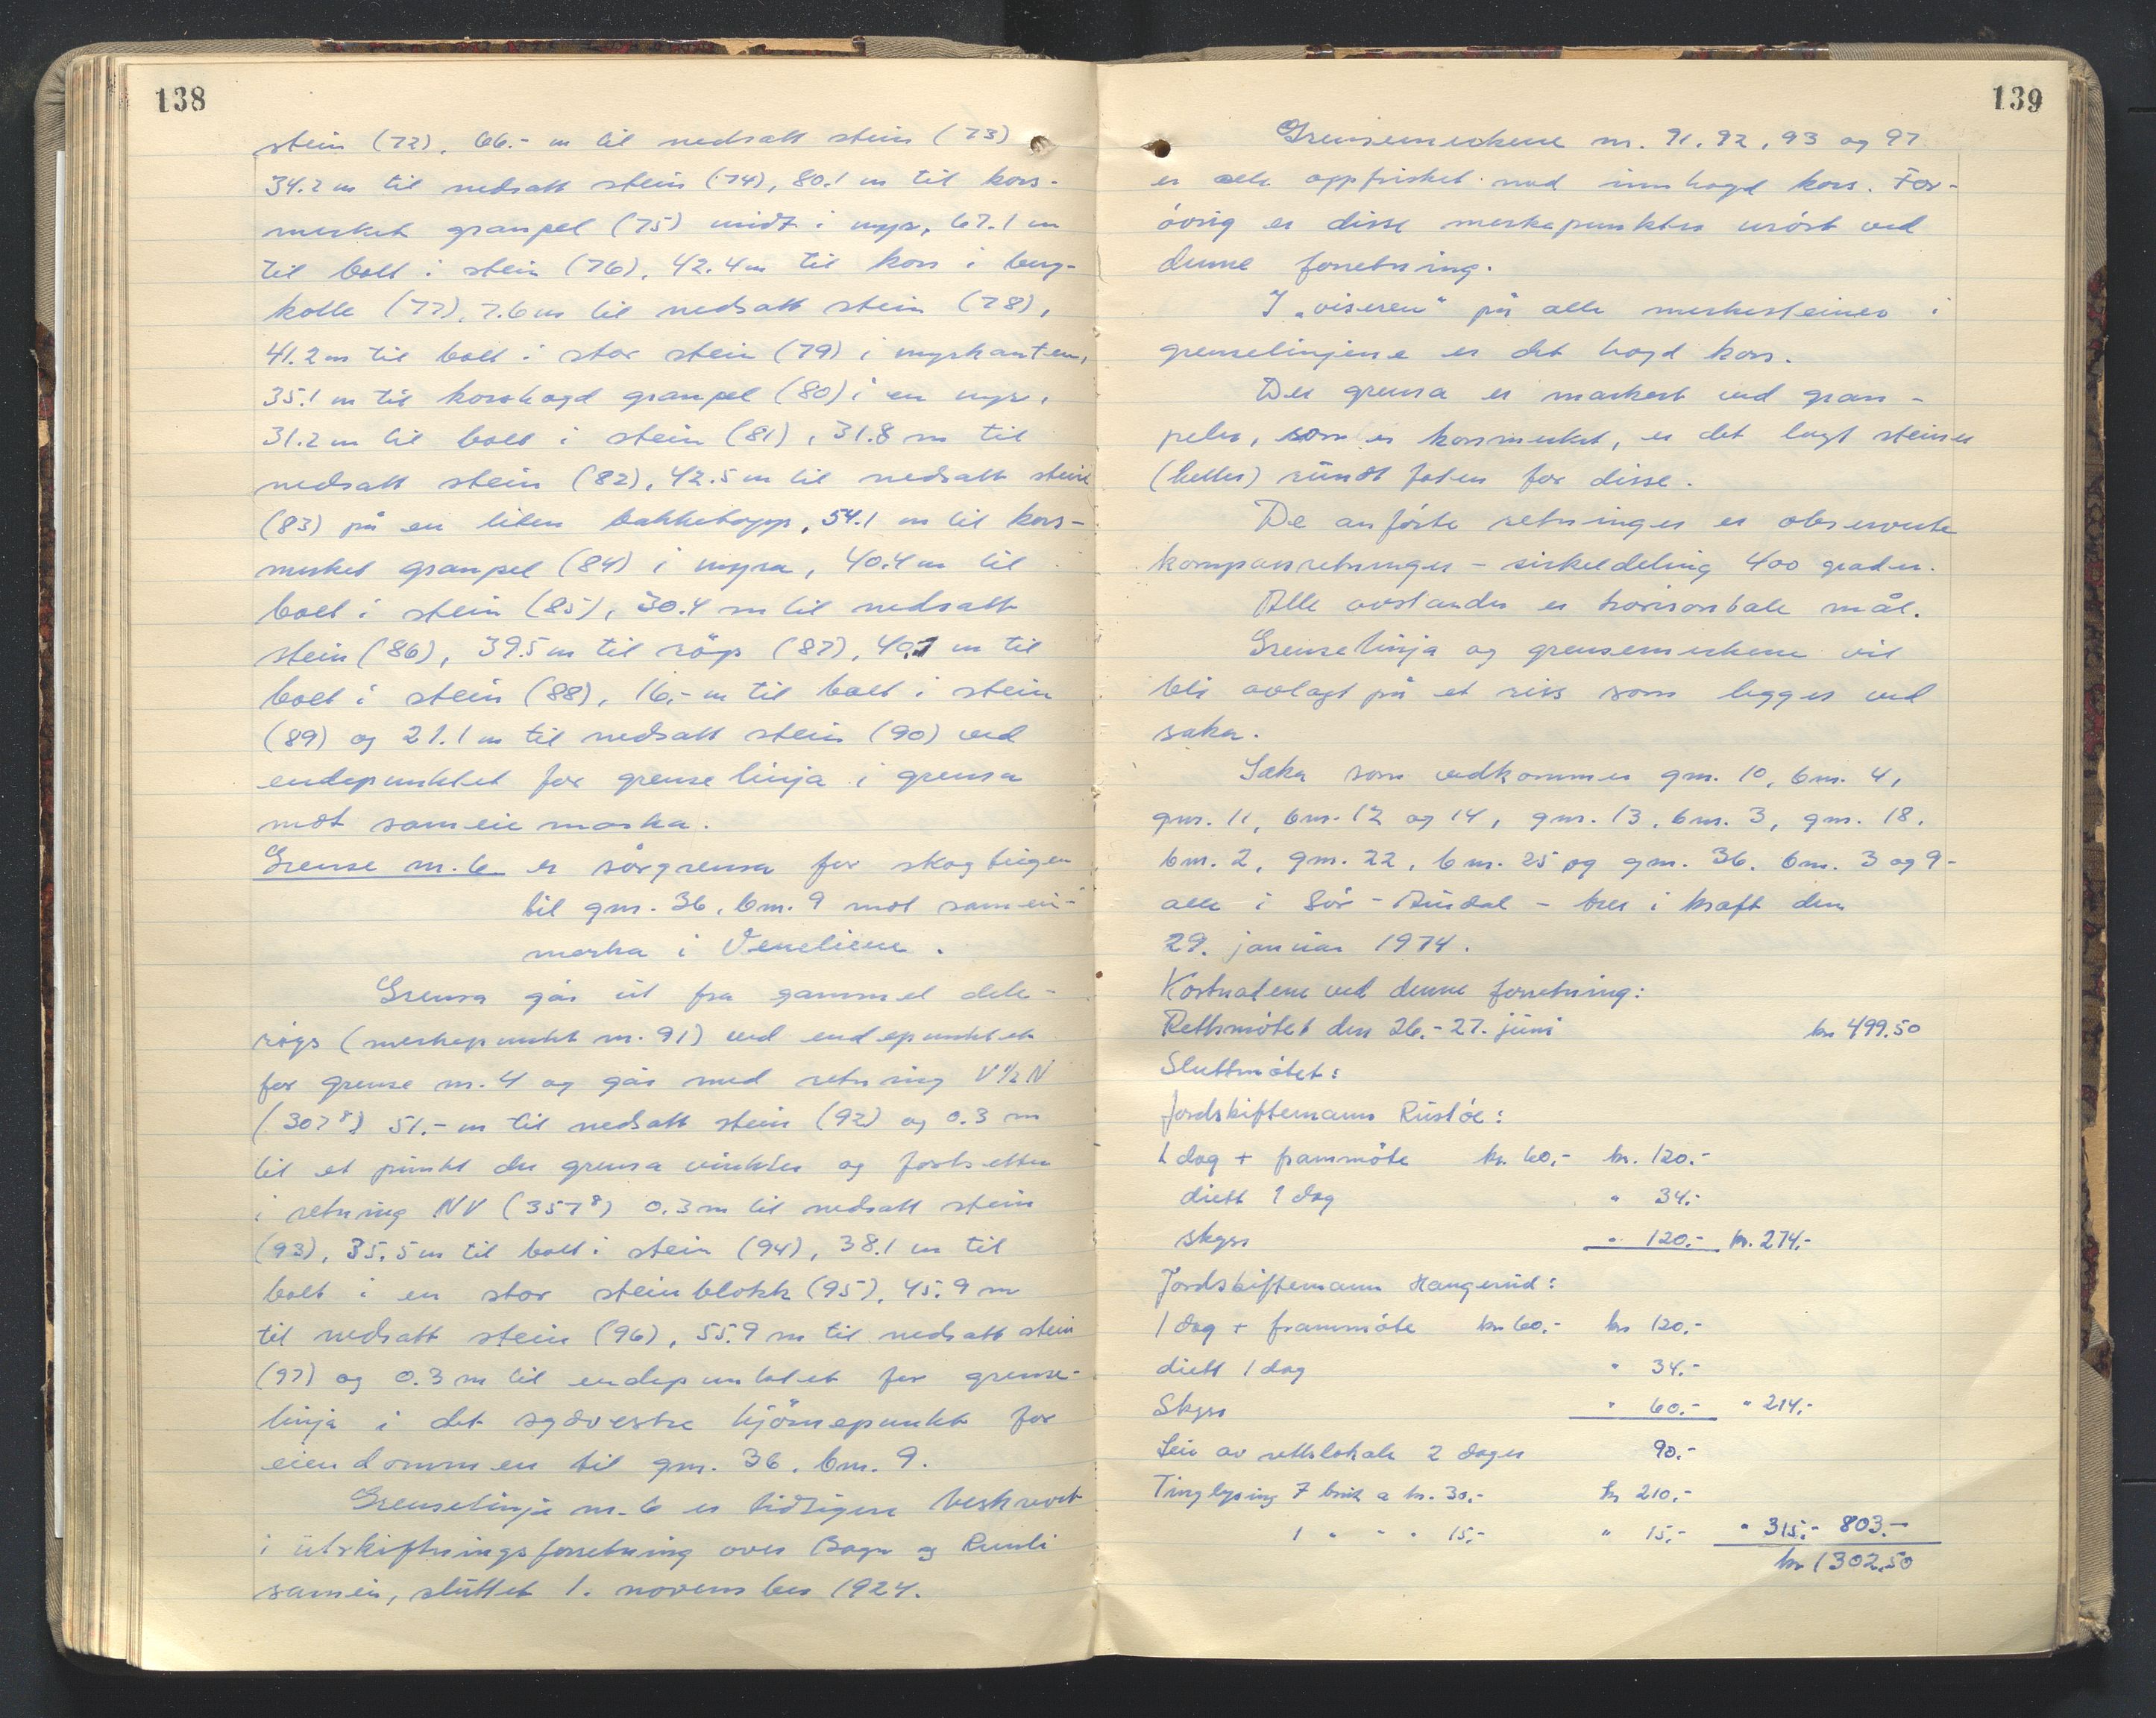 138
stein (72), 66.- m til nedsatt stein (73)
34.2 m til nedsatt stein (74), 80.1 m til kors-
merket granpel (75) midt i myr, 67.1 m
til bolt i stein (76), 42.4 m til kors i berg-
kolle (77), 7.6 m til nedsatt stein (78),
41.2 m til bolt i stor stein (79) i myrkanten,
35.1 m til korshogd granpel (80) i en myr,
31.2 m til bolt i stein (81), 31.8 m til
nedsatt stein (82), 42.5 m til nedsatt stein
(83) på en liten bakketopp, 54.1 m til kors-
merket granpel (84) i myra, 40.4 m til
bolt i stein (85), 30.4 m til nedsatt
stein (86), 39.5 m til röys (87), 40.1 m til
bolt i stein (88), 16,- m til bolt i stein
(89) og 21.1 m til nedsatt stein (90) ved
endepunktet for grenselinja i grensa
mot sameiemarka.
Grense nr. 6 er sørgrensa for skogteigen
til gnr. 36, bnr. 9 mot sameie-
marka i Veneliene.
Grensa går ut fra gammel dele-
röys (merkepunkt nr. 91) ved endepunktet
for grense nr. 4 og går med retning V½N
(307⁸) 51.- m til nedsatt stein (92) og 0.3 m
til et punkt der grensa vinkler og fortsetter
i retning NV (357⁸) 0.3 m til nedsatt stein
(93), 35.5 m til bolt i stein (94), 38.1 m til
bolt i en stor steinblokk (95), 45.9 m
til nedsatt stein (96), 55.9 m til nedsatt stein
(97) og 0.3 m til endepunktet for grense-
linja i det sydvestre hjørnepunkt for
eiendommen til gnr. 36, bnr. 9.
Grenselinje nr. 6 er tidligere beskrevet
i utskiftningsforretning over Bagn og Reinli
sameie, sluttet 1. november 1924.
139
Grensemerkene nr. 91, 92, 93 og 97
er alle oppfrisket med innhogd kors. For-
övrig er disse merkepunkter urört ved
denne forretning.
I „viseren" på alle merkesteiner i
grenselinjene er det hogd kors.
Der grensa er markert ved gran-
peler, som er korsmerket, er det lagt steiner
(heller) rundt foten for disse.
De anförte retninger er observerte
kompassretninger - sirkeldeling 400 grader.
Alle avstander er horisontale mål.
Grenselinja og grensemerkene vil
bli avlagt på et riss som legges ved
saka.
Saka som vedkommer gnr. 10, bnr. 4,
gnr. 11, bnr. 12 og 14, gnr. 13, bnr. 3, gnr. 18,
bnr. 2, gnr. 22, bnr. 25 og gnr. 36, bnr. 3 og 9 -
alle i Sør-Aurdal - trer i kraft den
29. januar 1974.
Kostnadene ved denne forretning:
Rettsmötet den 26.-27. juni kr 499.50
Sluttmötet:
Jordskiftemann Rustöe:
1 dag + frammöte kr. 60,- kr. 120.-
diett 1 dag " 34.-
skyss " 120.- kr. 274.-
Jordskiftemann Haugerud:
1 dag + frammöte kr 60.- kr 120.-
diett 1 dag " 34.-
Skyss " 60.- " 214.-
Leie av rettslokale 2 dager 90.-
Tinglysing 7 bruk a kr. 30.- kr 210.-
1 " - " 15.- " 15.- " 315.- 803.-
kr 1302.50